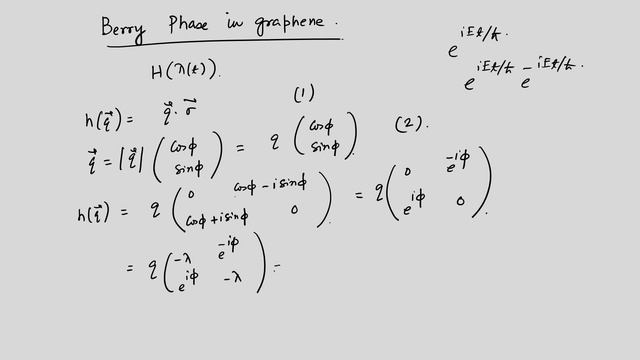 Berry Phase in graphene.
e^{iEt/ħ}.
H(λ(t)).
e^{iEt/ħ} e^{-iEt/ħ}.
h(q⃗) = q⃗·σ⃗ (1)
q⃗ = |q⃗| (cosφ sinφ) = q (cosφ sinφ) (2).
h(q⃗) = q (0 cosφ-isinφ cosφ+isinφ 0) = q (0 e^{-iφ} e^{iφ} 0).
= q (-λ e^{-iφ} e^{iφ} -λ) =